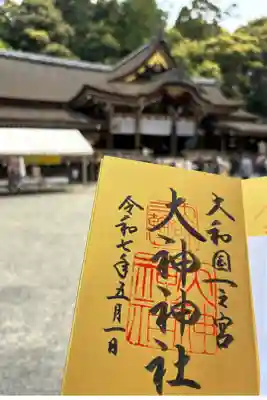 大和国一之宮
大神神社
令和七年五月一日